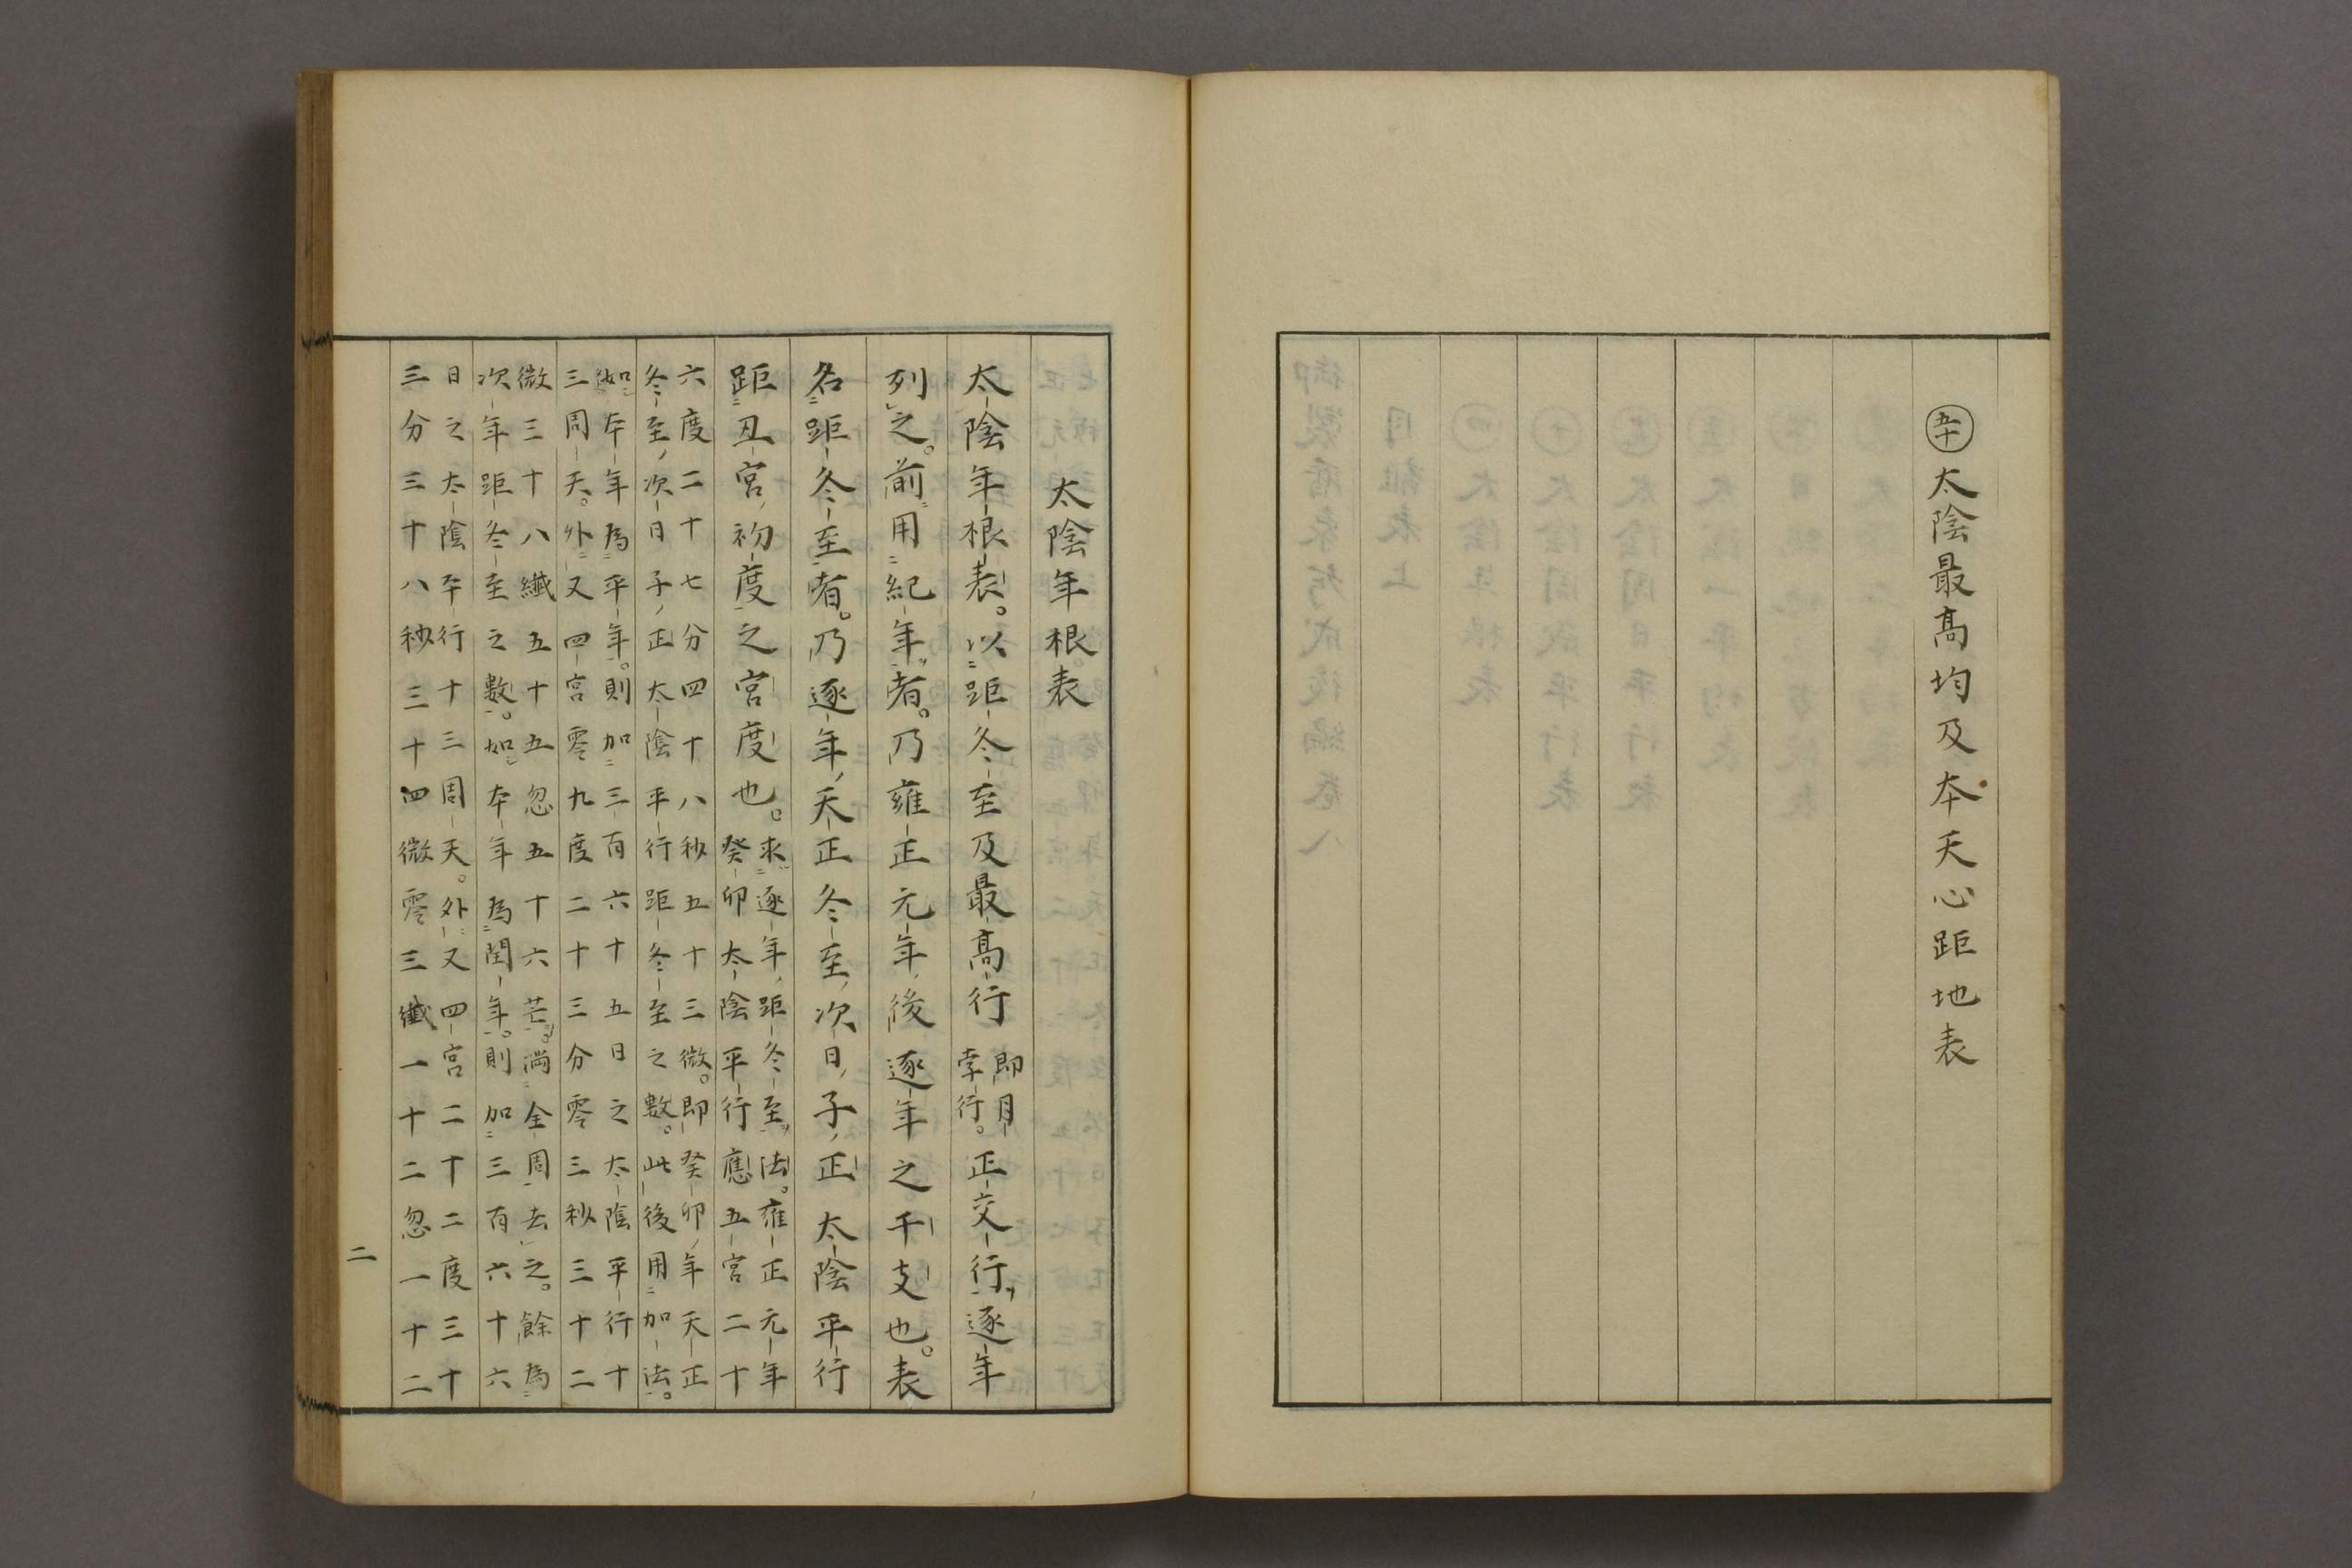 五十 太陰最高均及本天心距地表
太陰年根表
太陰年根表。以距冬至及最高行
即月
孛行。
正交行逐年
列之。前用紀年者。乃雍正元年後逐年之干支也。表
名距冬至者。乃逐年天正冬至次日子正太陰平行
距丑宮初度之宮度也。
求逐年距冬至法。雍正元年
癸卯太陰平行應五宮二十
六度二十七分四十八秒五十三微。即癸卯年天正
冬至次日子正太陰平行距冬至之數。此後用加法。
如本年為平年。則加三百六十五日之太陰平行十
三周天。外又四宮零九度二十三分零三秒三十二
微三十八纖五十五忽五十六芒。満全周去之。餘為
次年距冬至之數。如本年為閏年。則加三百六十六
日之太陰本行十三周天。外又四宮二十二度三十
三分三十八秒三十四微零三纖一十二忽一十二
二